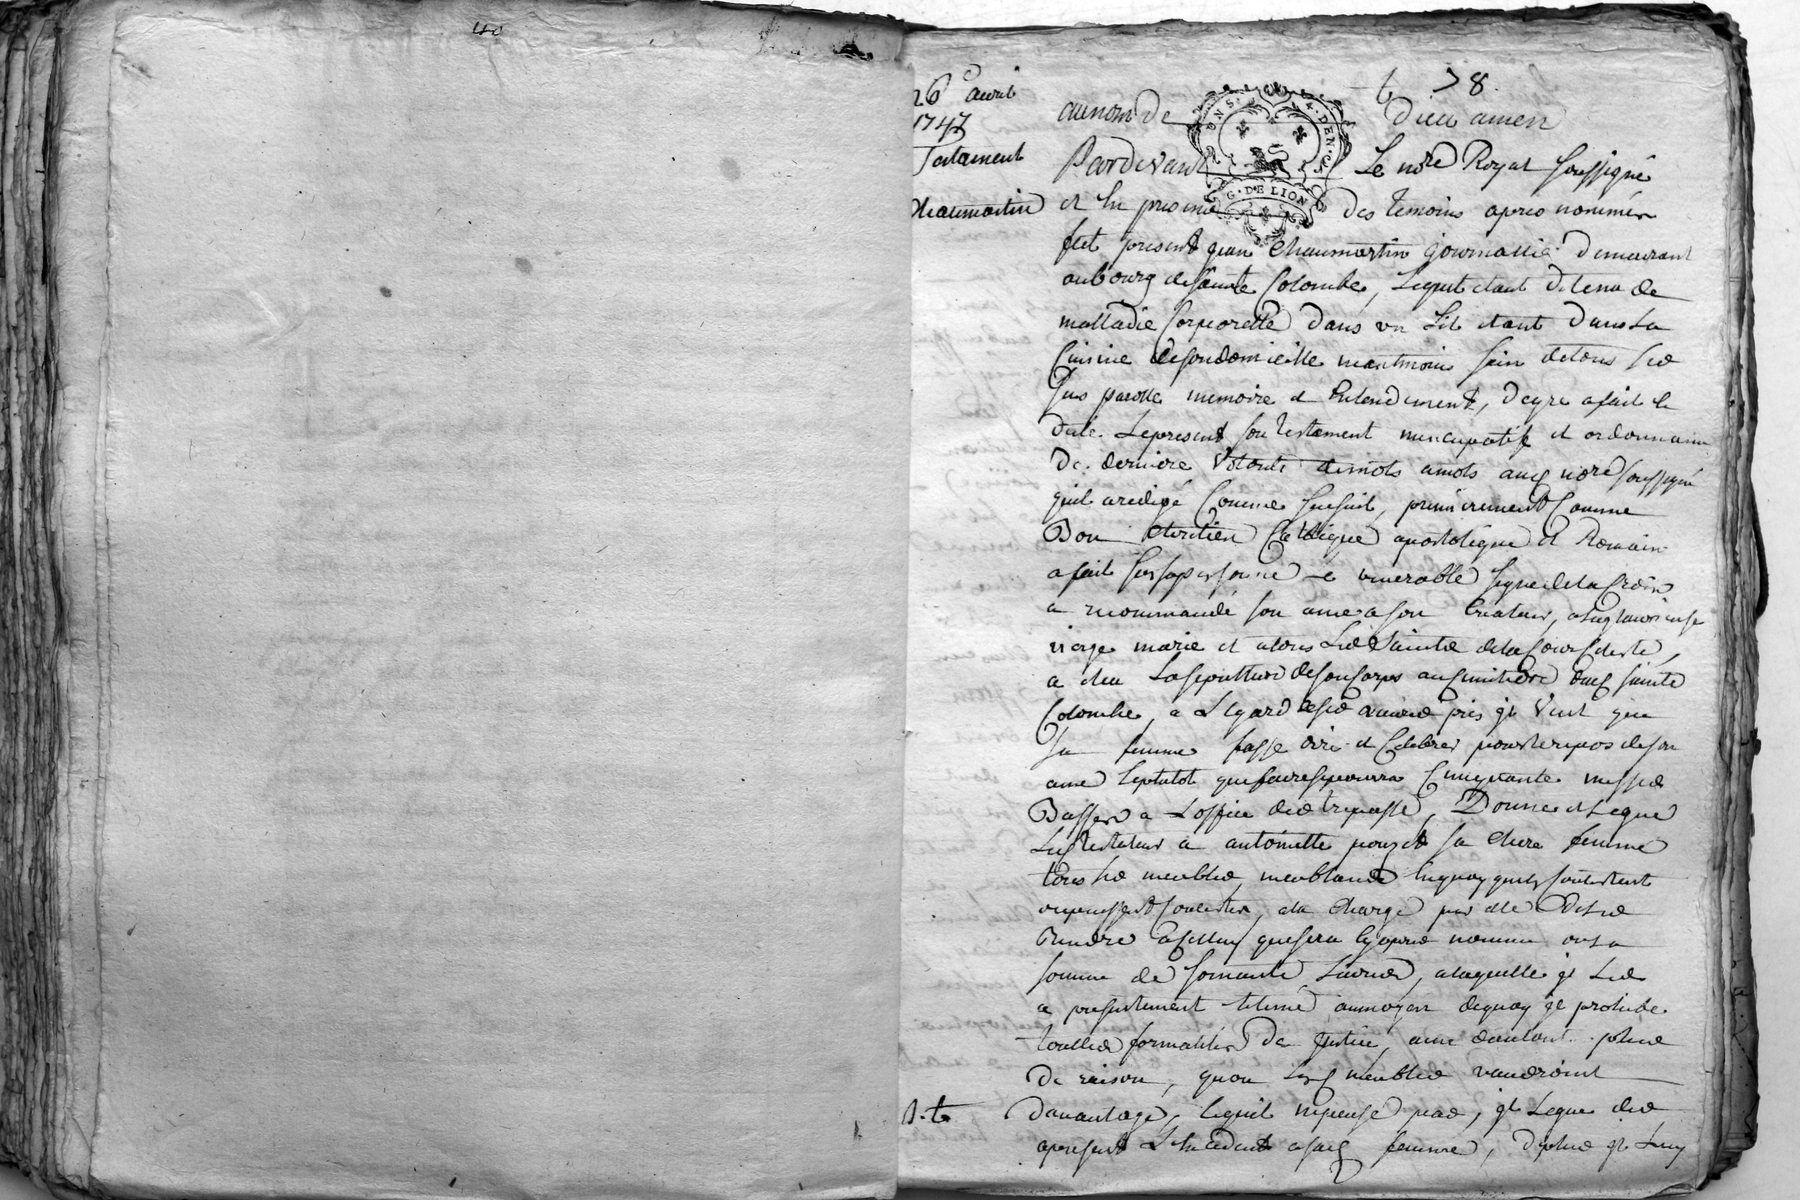 26e avril
1747
Testament
Chaumartin
78
au nom de Dieu amen
GN DNS. 4. DEN.
G. DE LION
Pardevant Le nore Royal soussigné
et En presence des temoins apres nommés
fut present jean Chaumartin journallier demeurant
au bourg de sainte Colombe, Lequel etant detenu de
malladie Corporelle dans un Lit etant dans La
Cuisine de son domicille neantmoins sain de tous ses
sens parolle memoire et Entendement, de gre a fait et
dicté Le present son testament nuncupatif et ordonnance
de derniere Volonté de mots a mots aud nore soussigné
quil a redigé Comme sensuit, premierement Comme
Bon Chretien Catolique apostolique et Romain
a fait sur sa personne le venerable signe de la Croix
a recommandé son ame a son Createur, a la glorieuse
vierge marie et a tous Les Saints de la Cour Celeste,
a elu La sepulture de son Corps au Cimitiere dud sainte
Colombe, a Legard de ses prieres jl Veut que
sa femme fasse dire et Celebrer pour le repos de son
ame Le plutot que faire se pourra Cinquante messes
Basses a Loffice des trepassés, Donne et Legue
Led testateur a antoinette pouzet sa chere femme
tous ses meubles meublants En quoy quils Consistent
ou puissent Consister, a la Charge par elle de les
Rendre a Celluy qui sera Cy apres nommé ou La
somme de soixante Livres, a laquelle jl Les
a presentement Estimé au moyen de quoy jl prohibe
touttes formalités de justice, avec dautant plus
de raison, quon Lesd meubles vaudroint
davantage, Ce quil ne pense pas, jl Legue dès
a present Lexcedent a sad femme, de plus jl Luy
J. C.